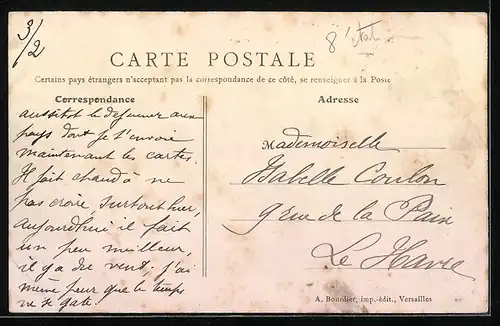 3/2
CARTE POSTALE
Certains pays étrangers n'acceptant pas la correspondance de ce côté, se renseigner à la Poste
Correspondance
aussitot le dejeuner aux
pays dont je t'envoie
maintenant les cartes.
Il fait chaud à ne
pas croire, surtout hier,
aujourd'hui il fait
un peu meilleur,
il y a du vent, j'ai
même peur que le temps
ne se gate.
Adresse
Mademoiselle
Isabelle Coulon
9 rue de la Paix
Le Havre
A. Bourdier, imp.-édit., Versailles